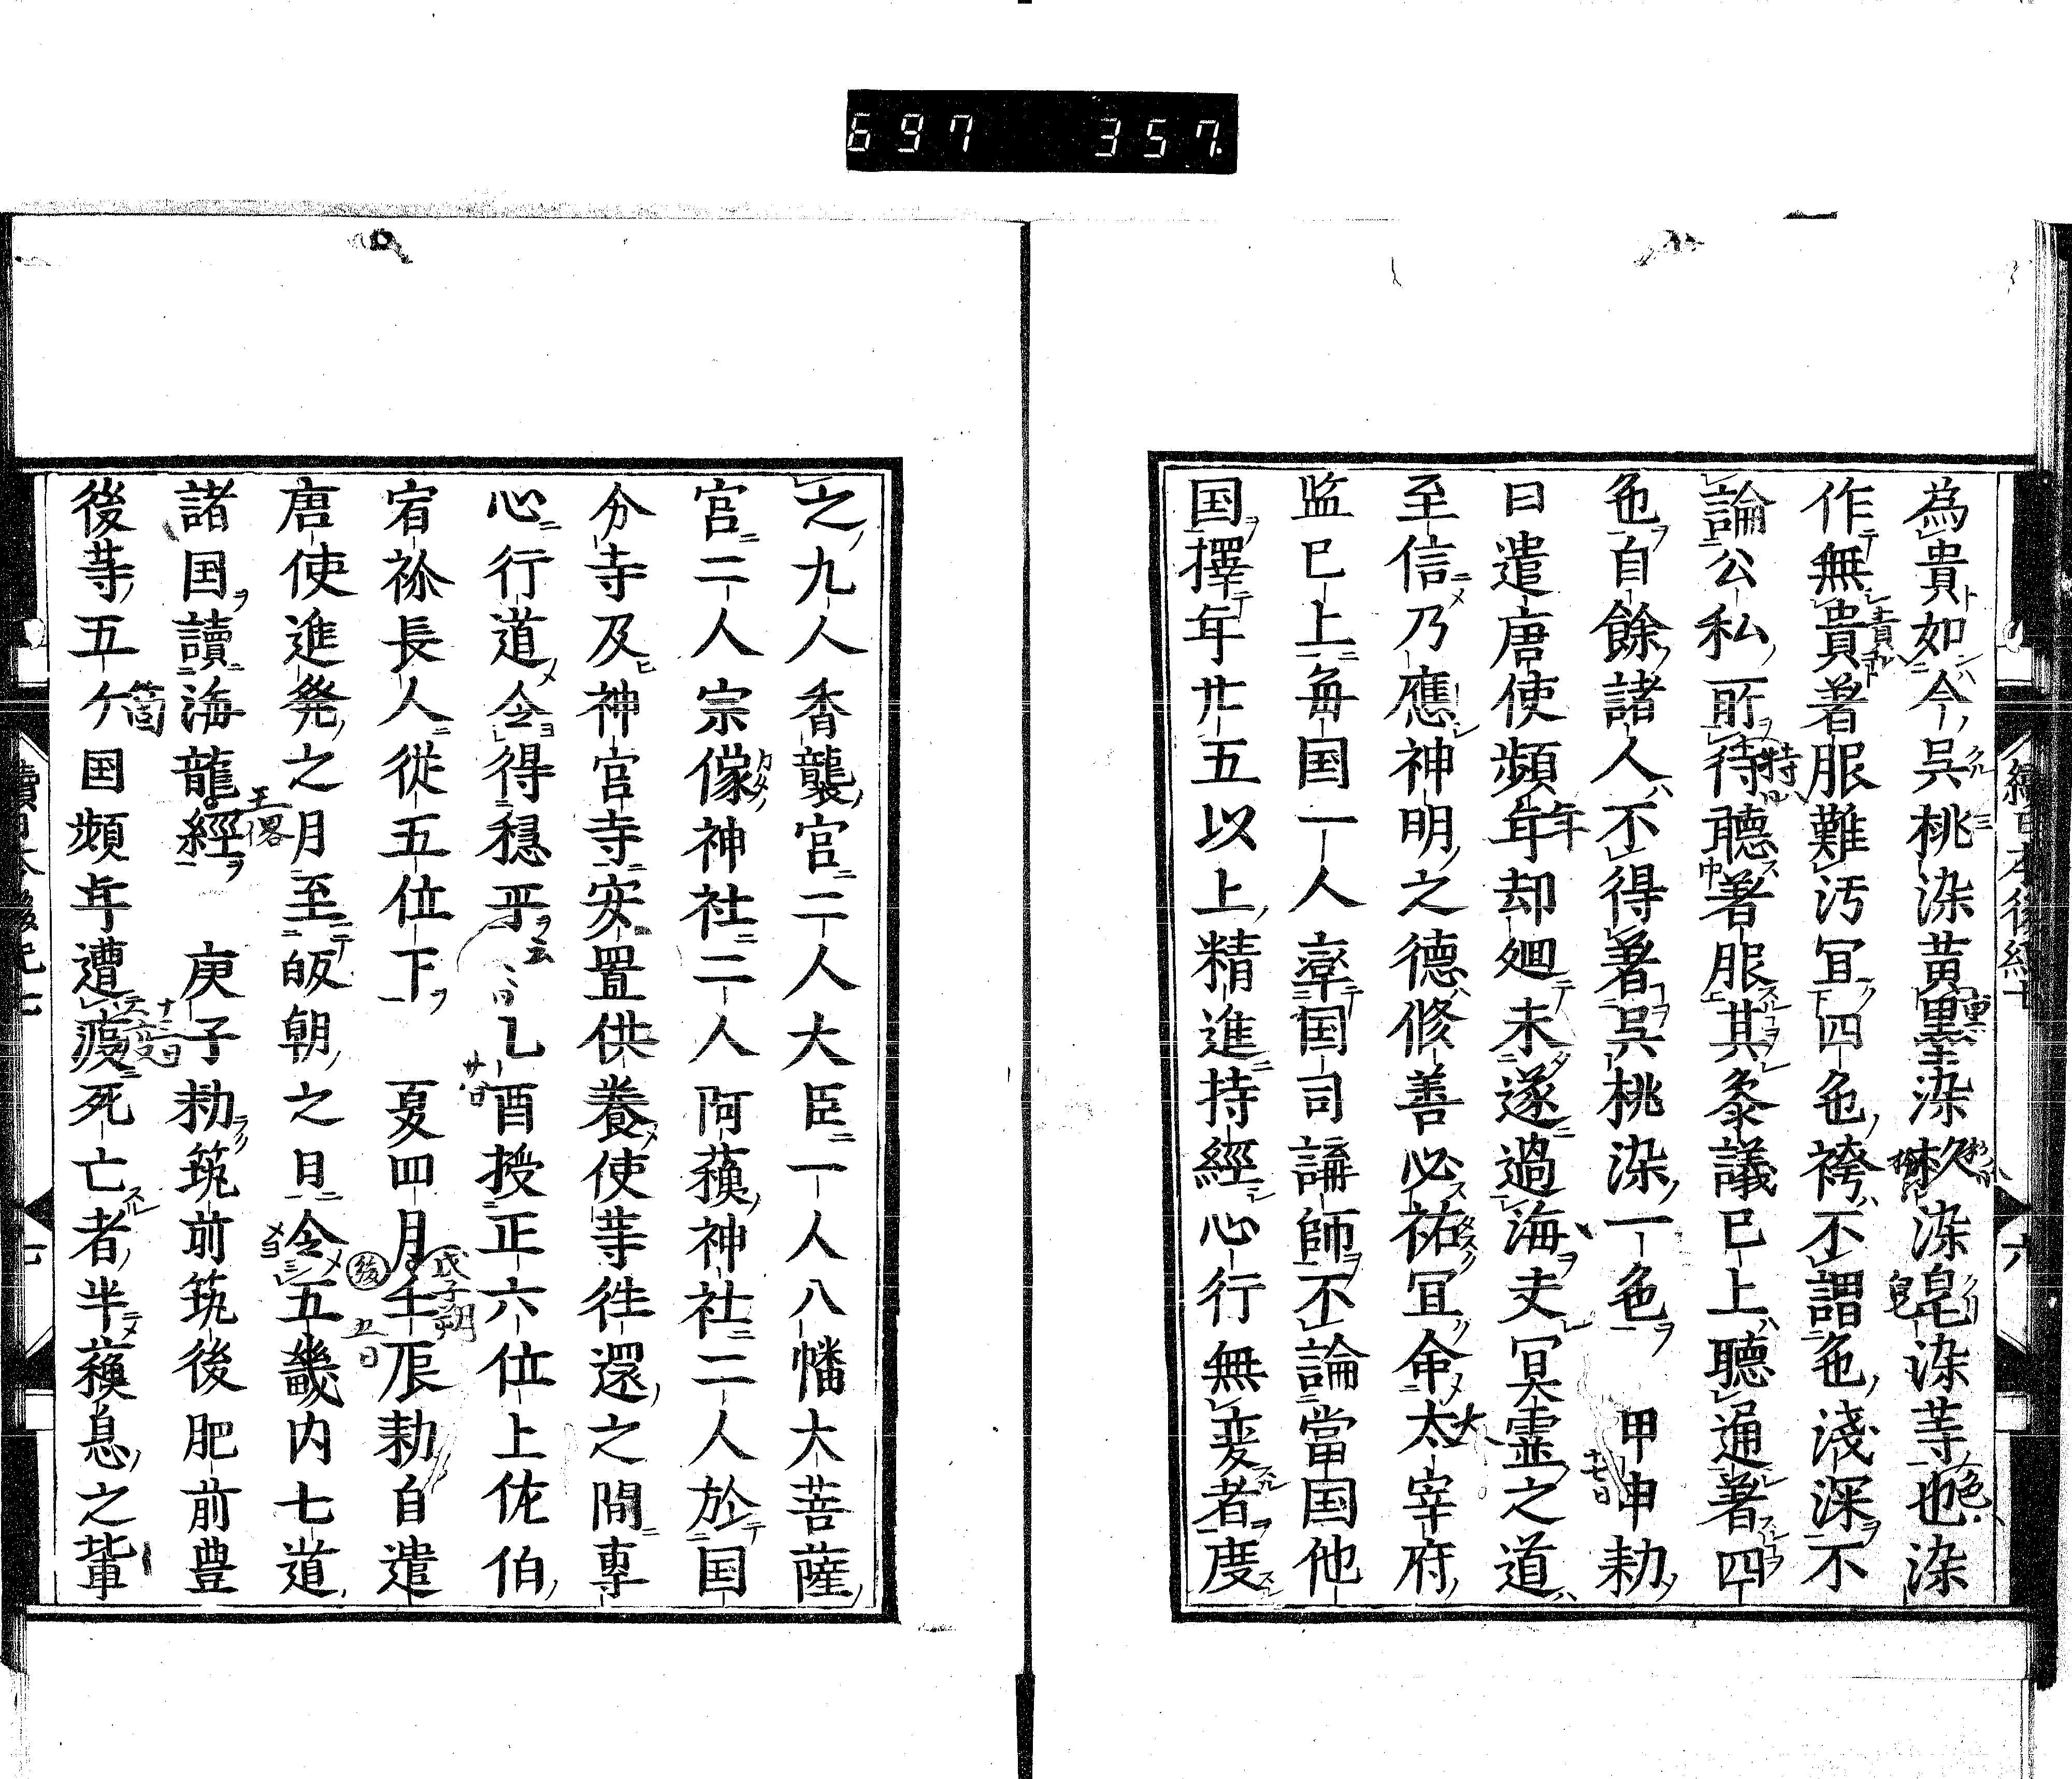 697 357.
為貴如今呉桃染黄黒染杦染皂染䒭也染
作無貴著服難汚冝四色袴不謂色淺深不
論公私所待聴著服其叅議已上聴通著四
色自餘諸人不得著呉桃染一色 甲申勅
曰遣唐使頻年却廻未遂過海夫冥霊之道
至信乃應神明之徳修善必祐冝令太宰府
監已上毎国一人率国司講師不論當国他
国擇年廿五以上精進持經心行無変者度
之九人香襲宮二人大臣一人八幡大菩薩
宮二人宗像神社二人阿蘓神社二人於国
分寺及神宮寺安置供養使䒭徃還之間専
心行道令得穏平 乙酉授正六位上佐伯
宿祢長人従五位下 夏四月壬辰勅自遣
唐使進発之月至皈朝之日令五畿内七道
諸国讀海龍經 庚子勅筑前筑後肥前豊
後䒭五ケ国頻年遭疫死亡者半蘓息之輩